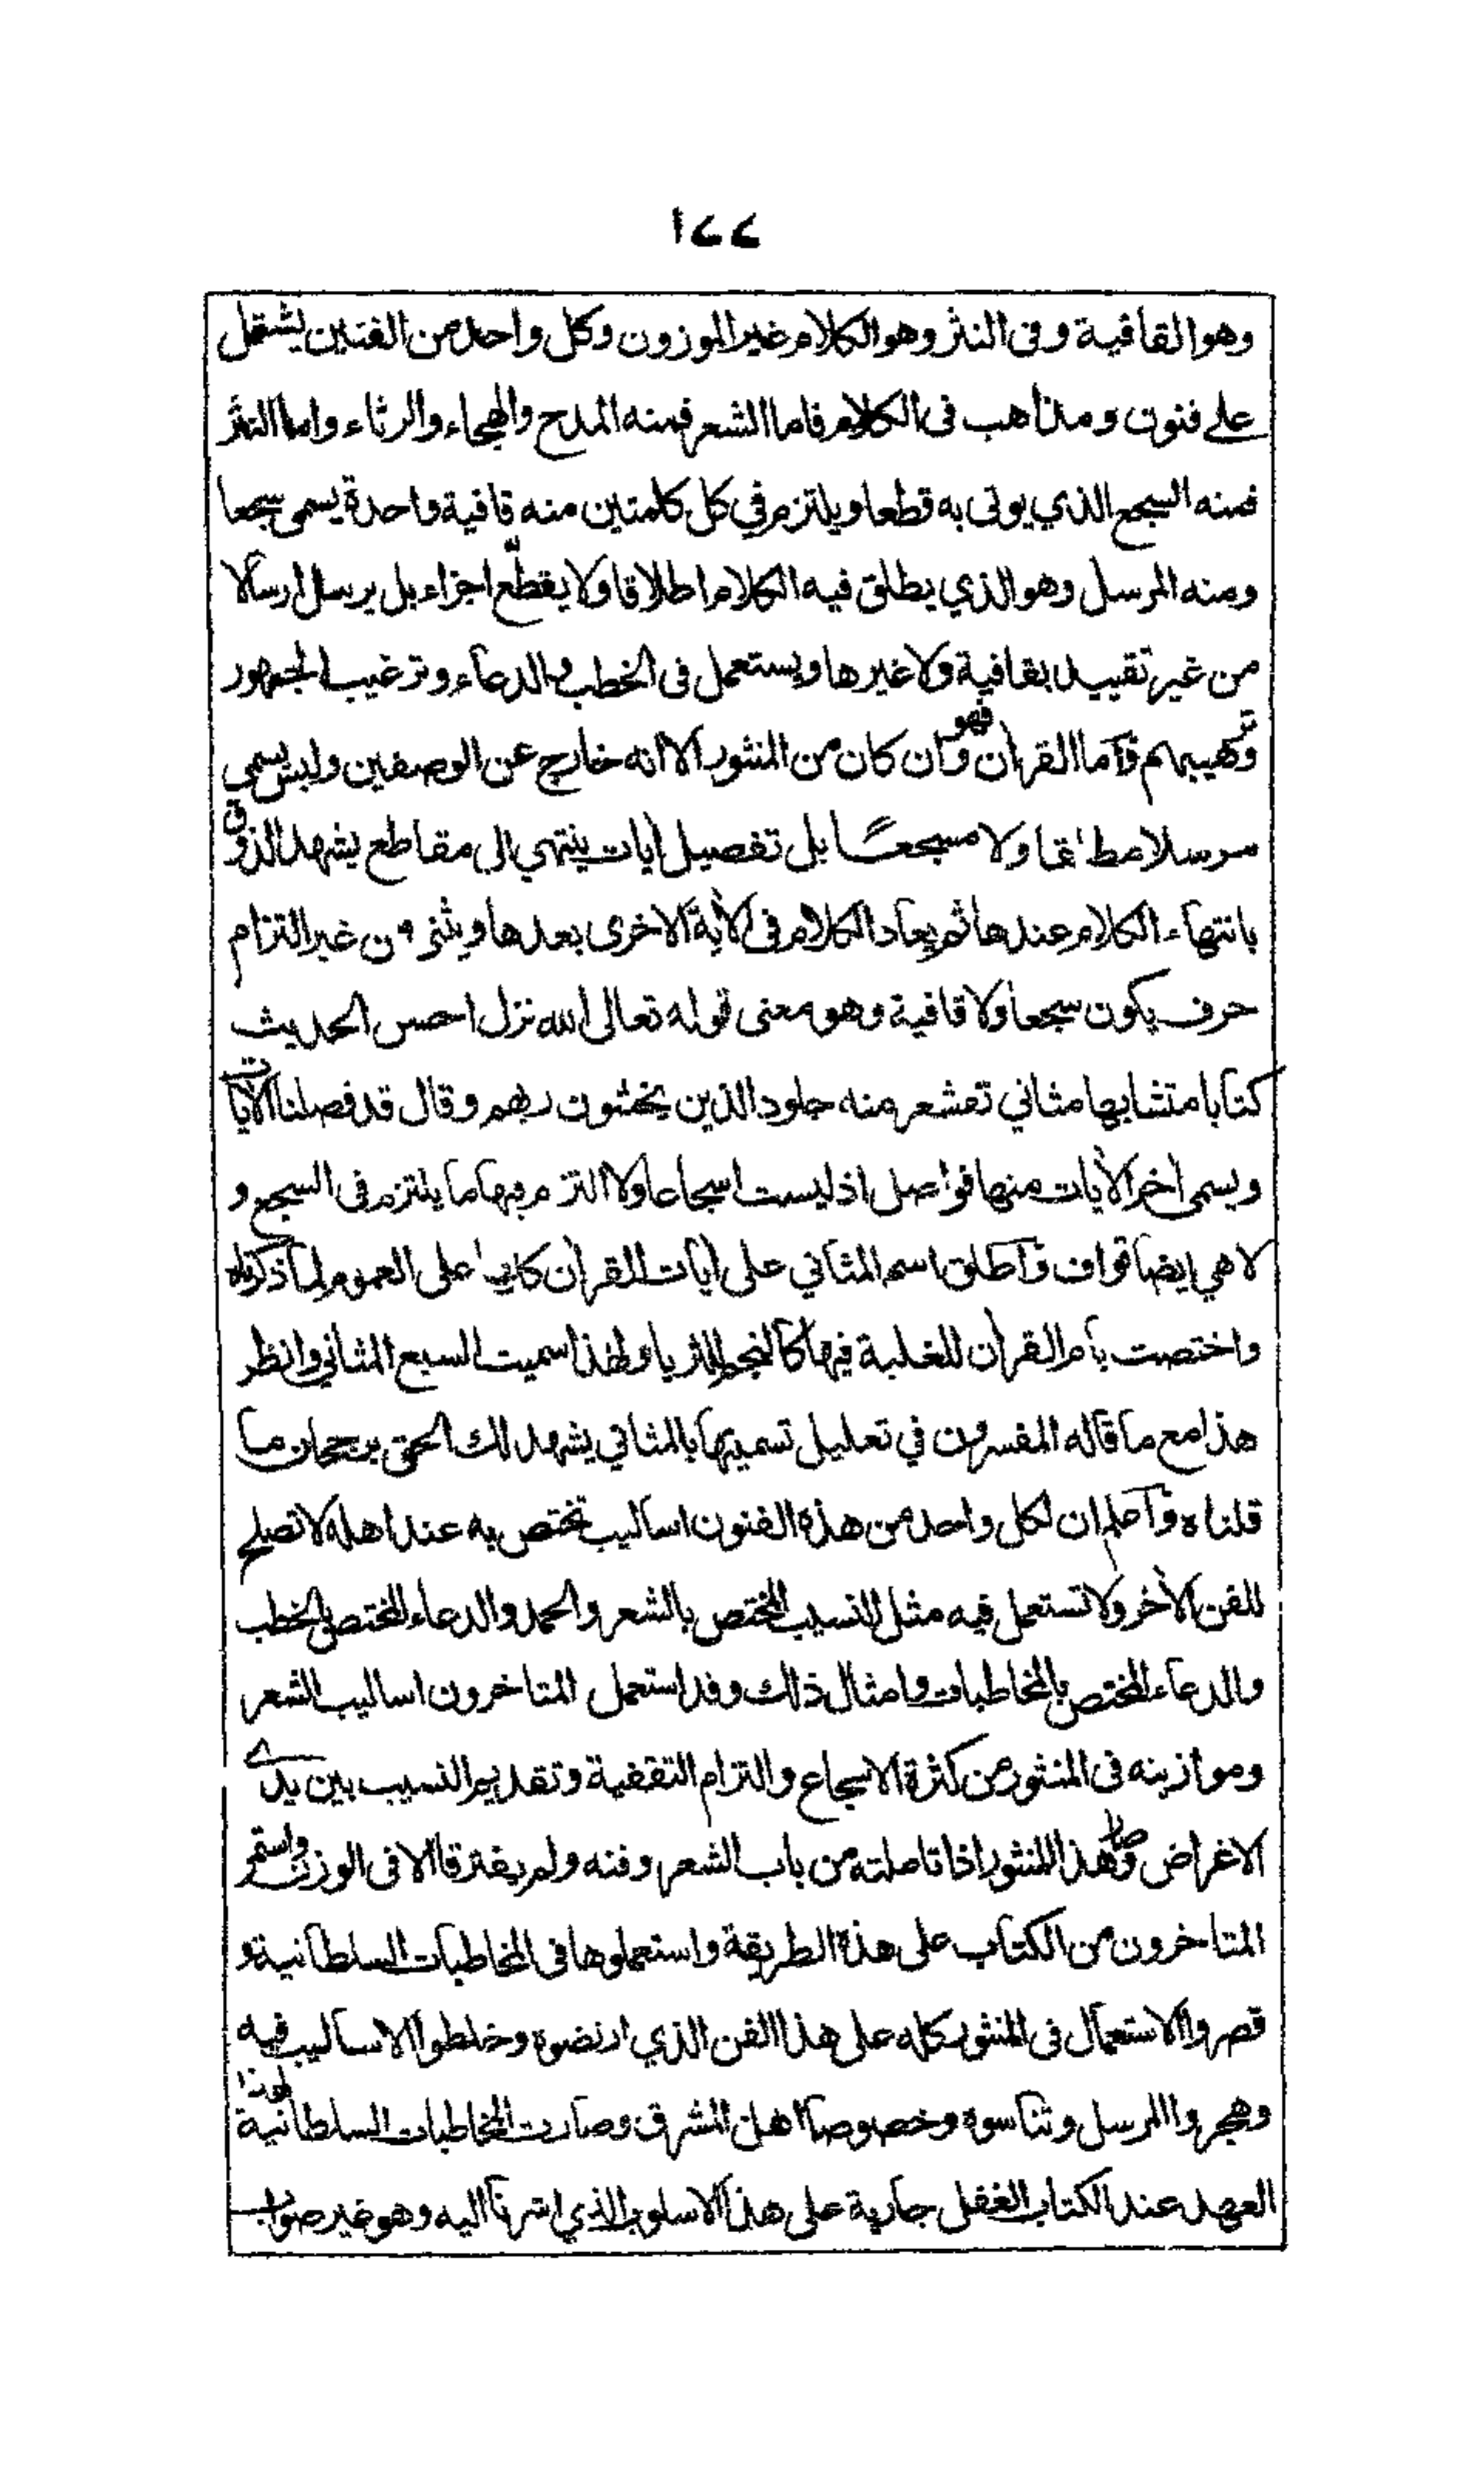 ١٧٧
وهو القافية وفى النثر وهو الكلام غير الموزون وكل واحد من الفنين يشتمل
على فنون ومذاهب فى الكلام فاما الشعر فمنه المدح والهجاء والرثاء واما النثر
فمنه السجع الذي يوتى به قطعا ويلتزم في كل كلمتين منه قافية واحدة يسمى سجعا
ومنه المرسل وهو الذي يطلق فيه الكلام اطلاقا ولا يقطّع اجزاء بل يرسل ارسالا
من غير تقييد بقافية ولا غيرها ويستعمل فى الخطب والدعاء وترغيب الجمهور
وترهيبهم وآما القرأن فهو وان كان من المنثور الا انه خارج عن الوصفين وليس يسمى
مرسلا مطلقا ولا مسجعًا بل تفصيل أيات ينتهي الى مقاطع يشهد الذوق
بانتهاء الكلام عندها ثم يعاد الكلام فى الأية الاخرى بعدها ويثنى من غير التزام
حرف يكون سجعا ولا قافية وهو معنى قوله تعالى الله نزل احسن الحديث
كتابا متشابها مثاني تقشعر منه جلود الذين يخشون ربهم وقال قد فصلنا الأيات
ويسمى أخر الأيات منها فواصل اذ ليست اسجاعا ولا التزم فيها ما يلتزم فى السجع و
لا هي ايضا قواف وآطلق اسم المثاني على أيات القرأن كلها على العموم لما ذكرناه
واختصت بأم القرأن للغلبة فيها كالنجم للثريا ولهذا سميت السبع المثاني وانظر
هذا مع ما قاله المفسرون في تعليل تسميتها بالمثاني يشهد لك الحق برجحان ما
قلناه وآعلم ان لكل واحد من هذه الفنون اساليب تختص به عند اهله لا تصلح
للفن الأخر ولا تستعمل فيه مثل النسيب المختص بالشعر والحمد والدعاء المختص بالخطب
والدعاء المختص بالمخاطبات وامثال ذلك وقد استعمل المتاخرون اساليب الشعر
وموازينه فى المنثور من كثرة الاسجاع والتزام التقفية وتقديم النسيب بين يدے
الاغراض وصار هذا المنثور اذا تاملته من باب الشعر وفنه ولم يفترقا الا فى الوزن واستمر
المتاخرون من الكتاب على هذه الطريقة واستعملوها فى المخاطبات السلطانية و
قصروا الاستعمال فى المنثور كله على هذا الفن الذي ارتضوه وخلطوا الاساليب فيه
وهجروا المرسل وتناسوه وخصوصا اهل المشرق وصارت المخاطبات السلطانية لهذا
العهد عند الكتاب الغفل جارية على هذا الاسلوب الذي اشرنا اليه وهو غير صواب